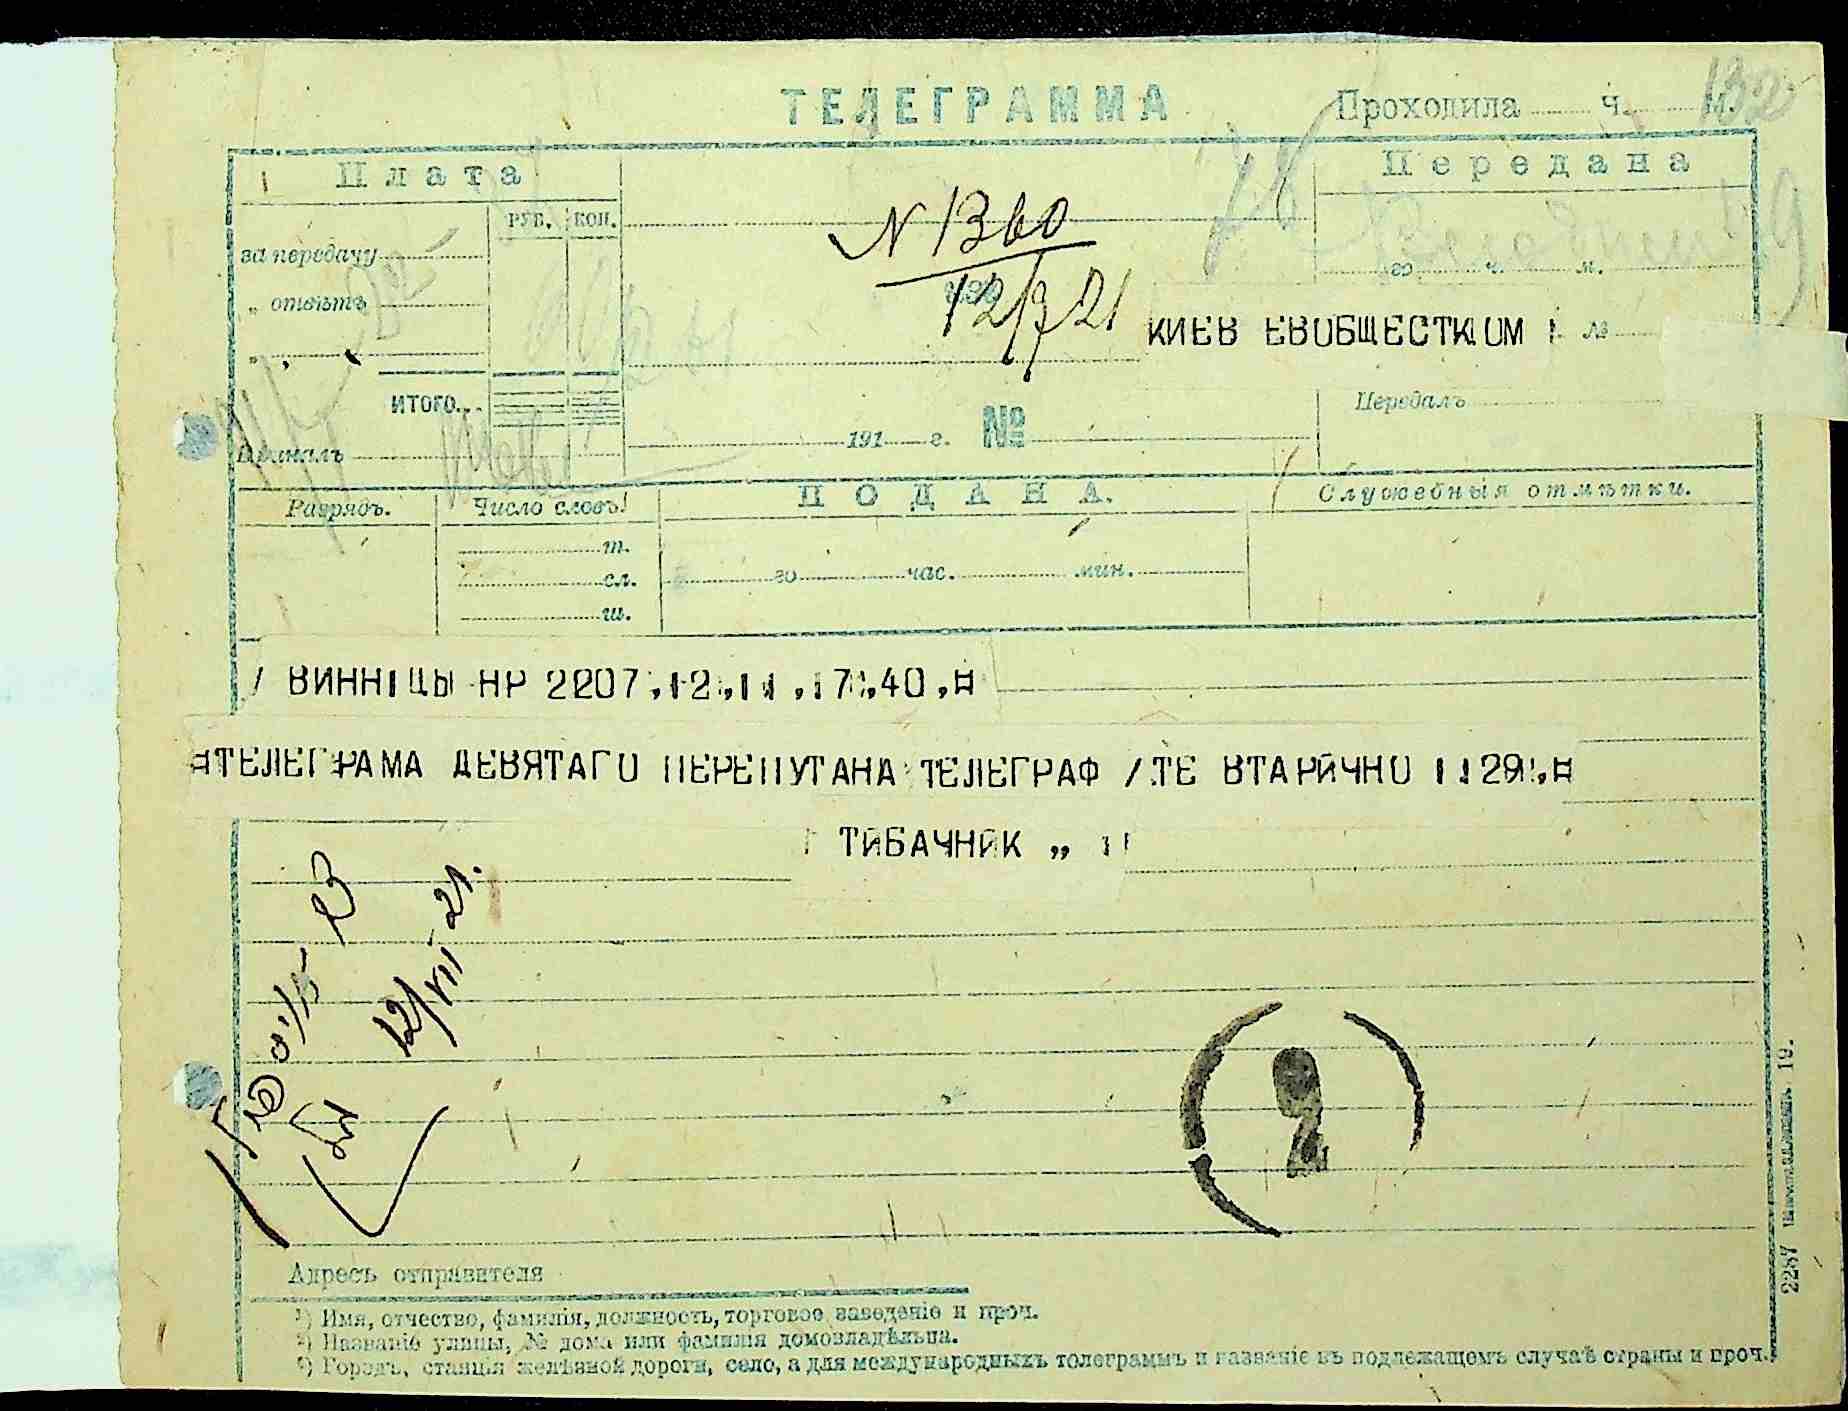 132
ТЕЛЕГРАММА
Проходила ч. м.
Плата
Передана
РУБ. КОП.
N 1360
за передачу
го ч. м.
„ отвѣтъ
12/7 21
КИЕВ ЕВОБЩЕСТКОМ
„ „
ИТОГО...
Передалъ
191 г. №
Принялъ
Разрядъ.
Число словъ
ПОДАНА.
Служебныя отмѣтки.
т.
сл.
го час. мин.
ш.
/ ВИННІЦЫ НР 2207,12,11,17,40,¤
¤ТЕЛЕГРАМА ДЕВЯТАГО ПЕРЕПУТАНА ТЕЛЕГРАФ /ТЕ ВТАРИЧНО 1129,¤
ТИБАЧНИК „
23
12/VII 21.
2
Адресъ отправителя
¹) Имя, отчество, фамилія, должность, торговое заведеніе и проч.
²) Названіе улицы, № дома или фамилія домовладѣльца.
³) Городъ, станція желѣзной дороги, село, а для международныхъ телеграммъ и названіе въ подлежащемъ случаѣ страны и проч.
2287 19.